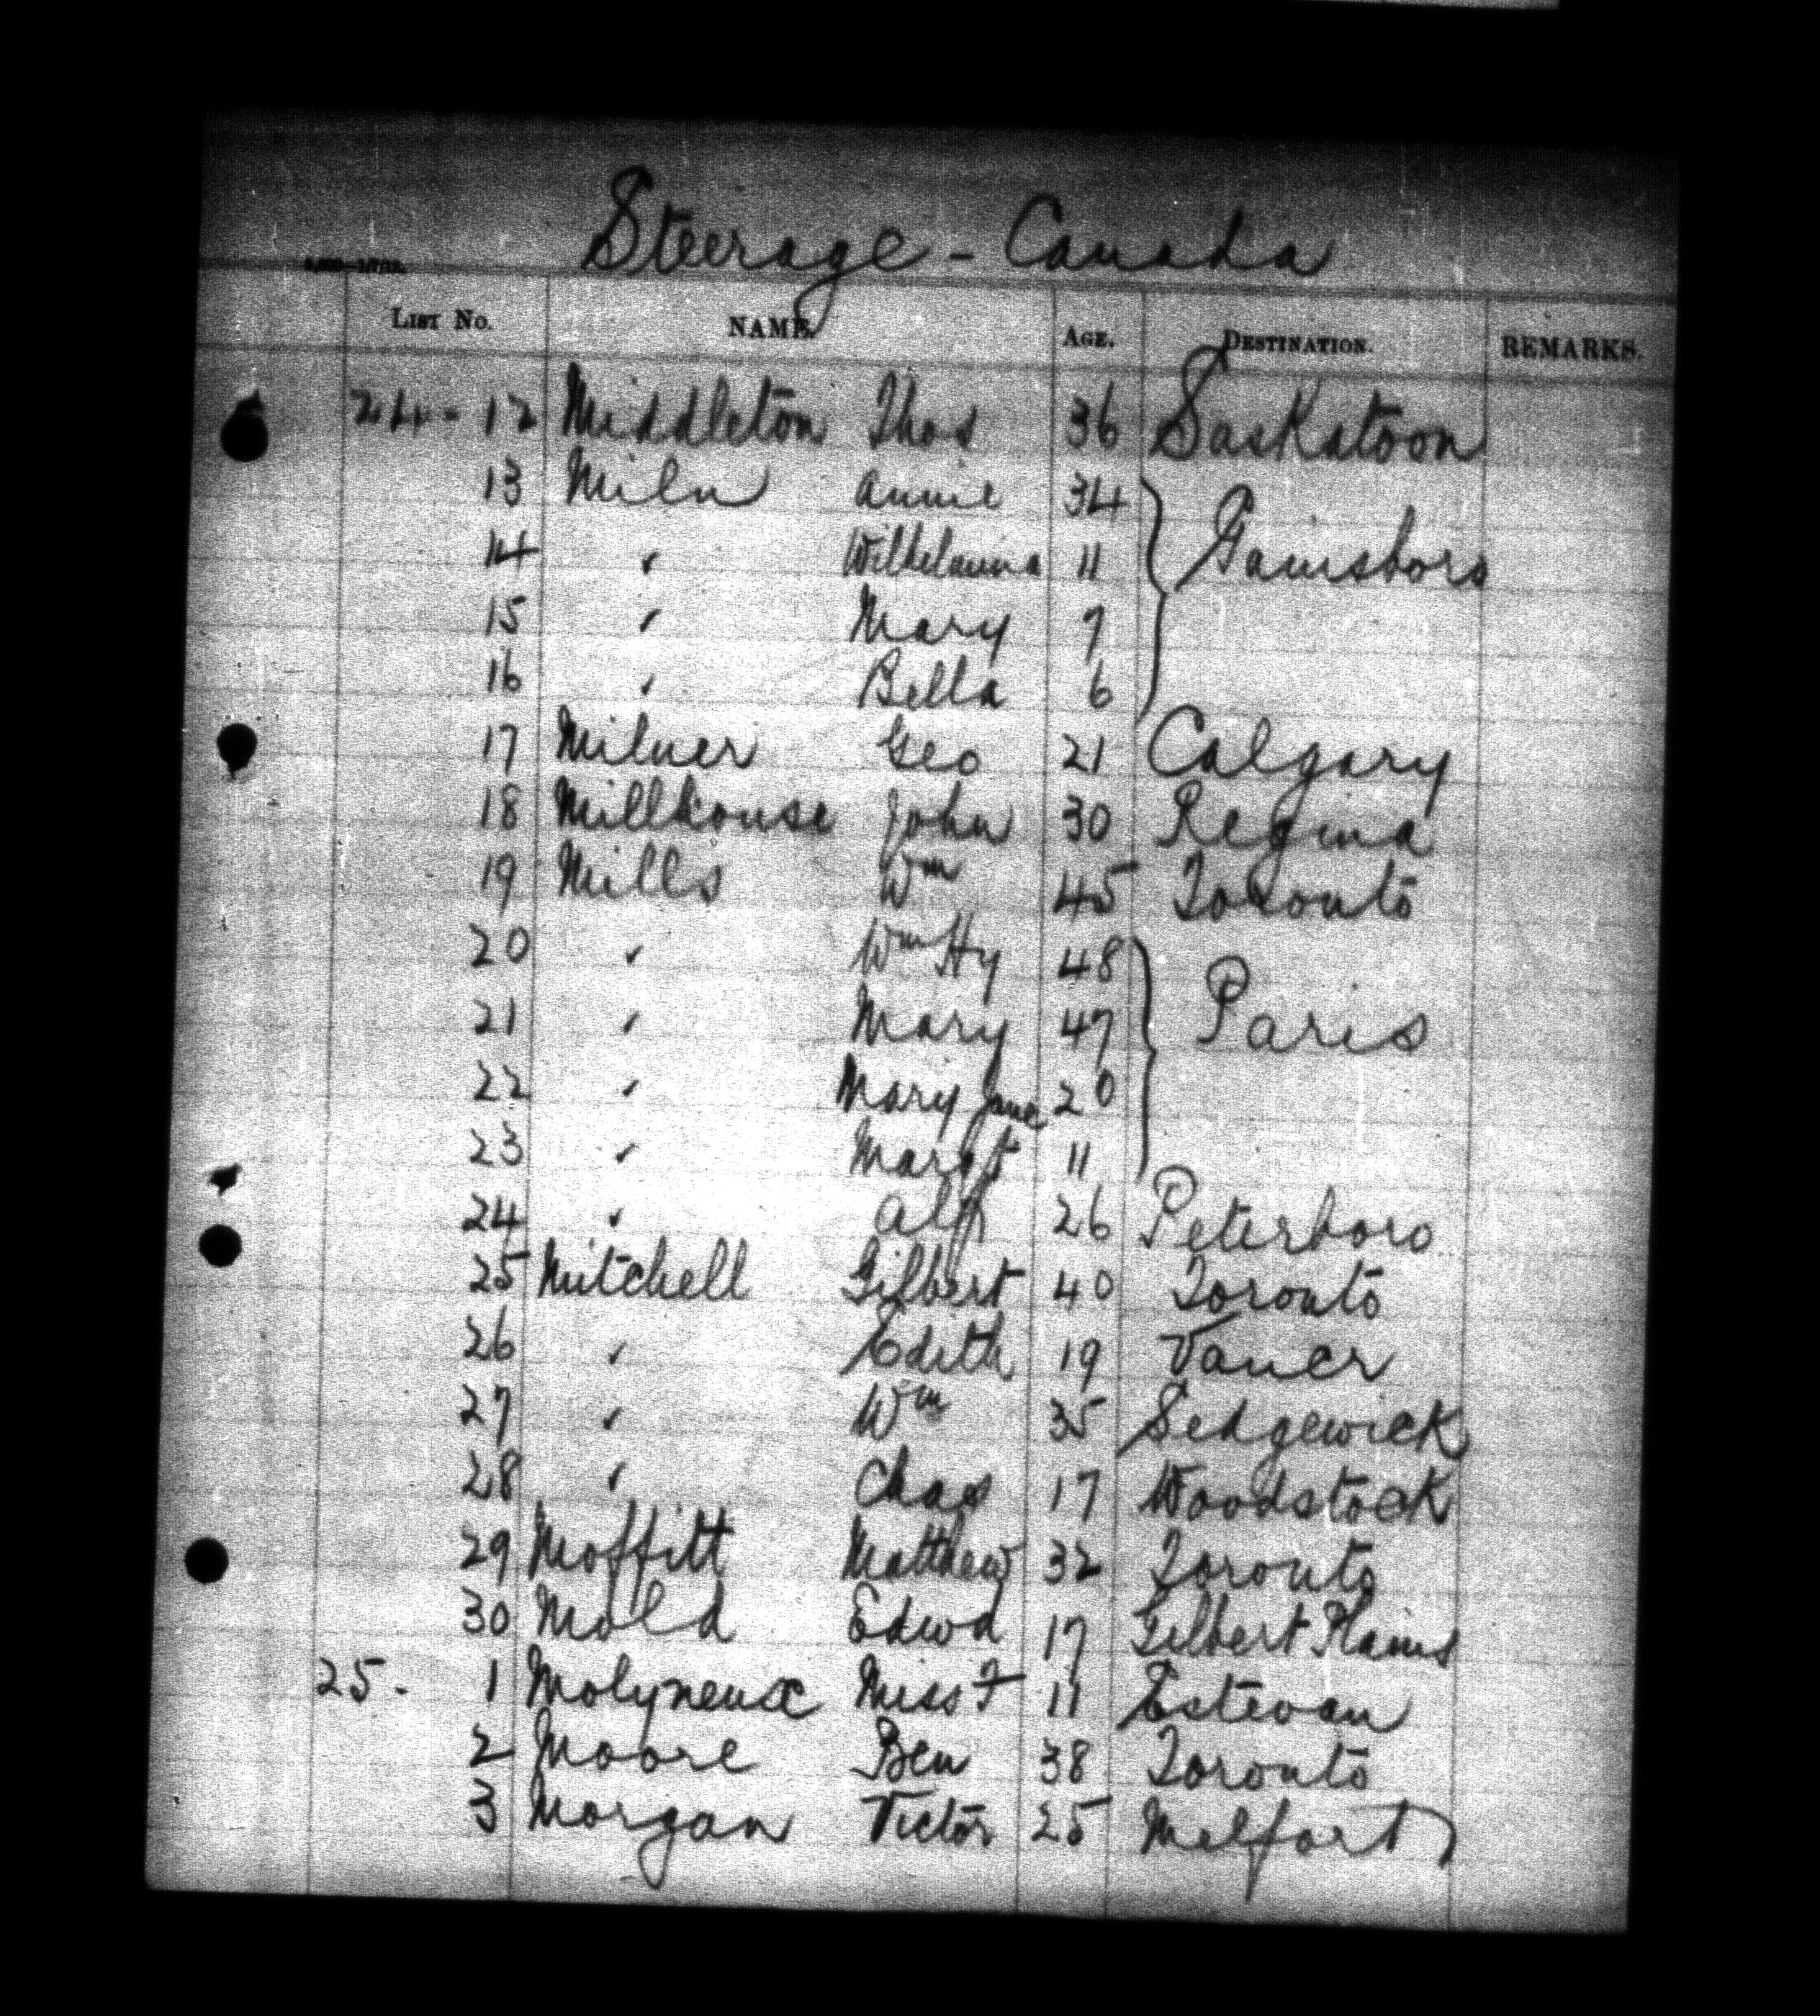 Steerage - Canada
List No. NAME. Age. Destination. REMARKS.
24 - 12 Middleton Thos 36 Saskatoon
13 Miln Annie 34
Gainsboro
14 " Wilhelmina 11
15 " Mary 7
16 " Bella 6
17 Milner Geo 21 Calgary
18 Millhouse John 30 Regina
19 Mills Wm 45 Toronto
20 " Wm Hy 48
Paris
21 " Mary 47
22 " Mary Jane 20
23 " Margt 11
24 " Alf 26 Peterboro
25 Mitchell Gilbert 40 Toronto
26 " Edith 19 Vancr
27 " Wm 35 Sedgewick
28 " Chas 17 Woodstock
29 Moffitt Matthew 32 Toronto
30 Mold Edwd 17 Gilbert Plains
25 - 1 Molyneux Miss F 11 Estevan
2 Moore Ben 38 Toronto
3 Morgan Victor 25 Melfort